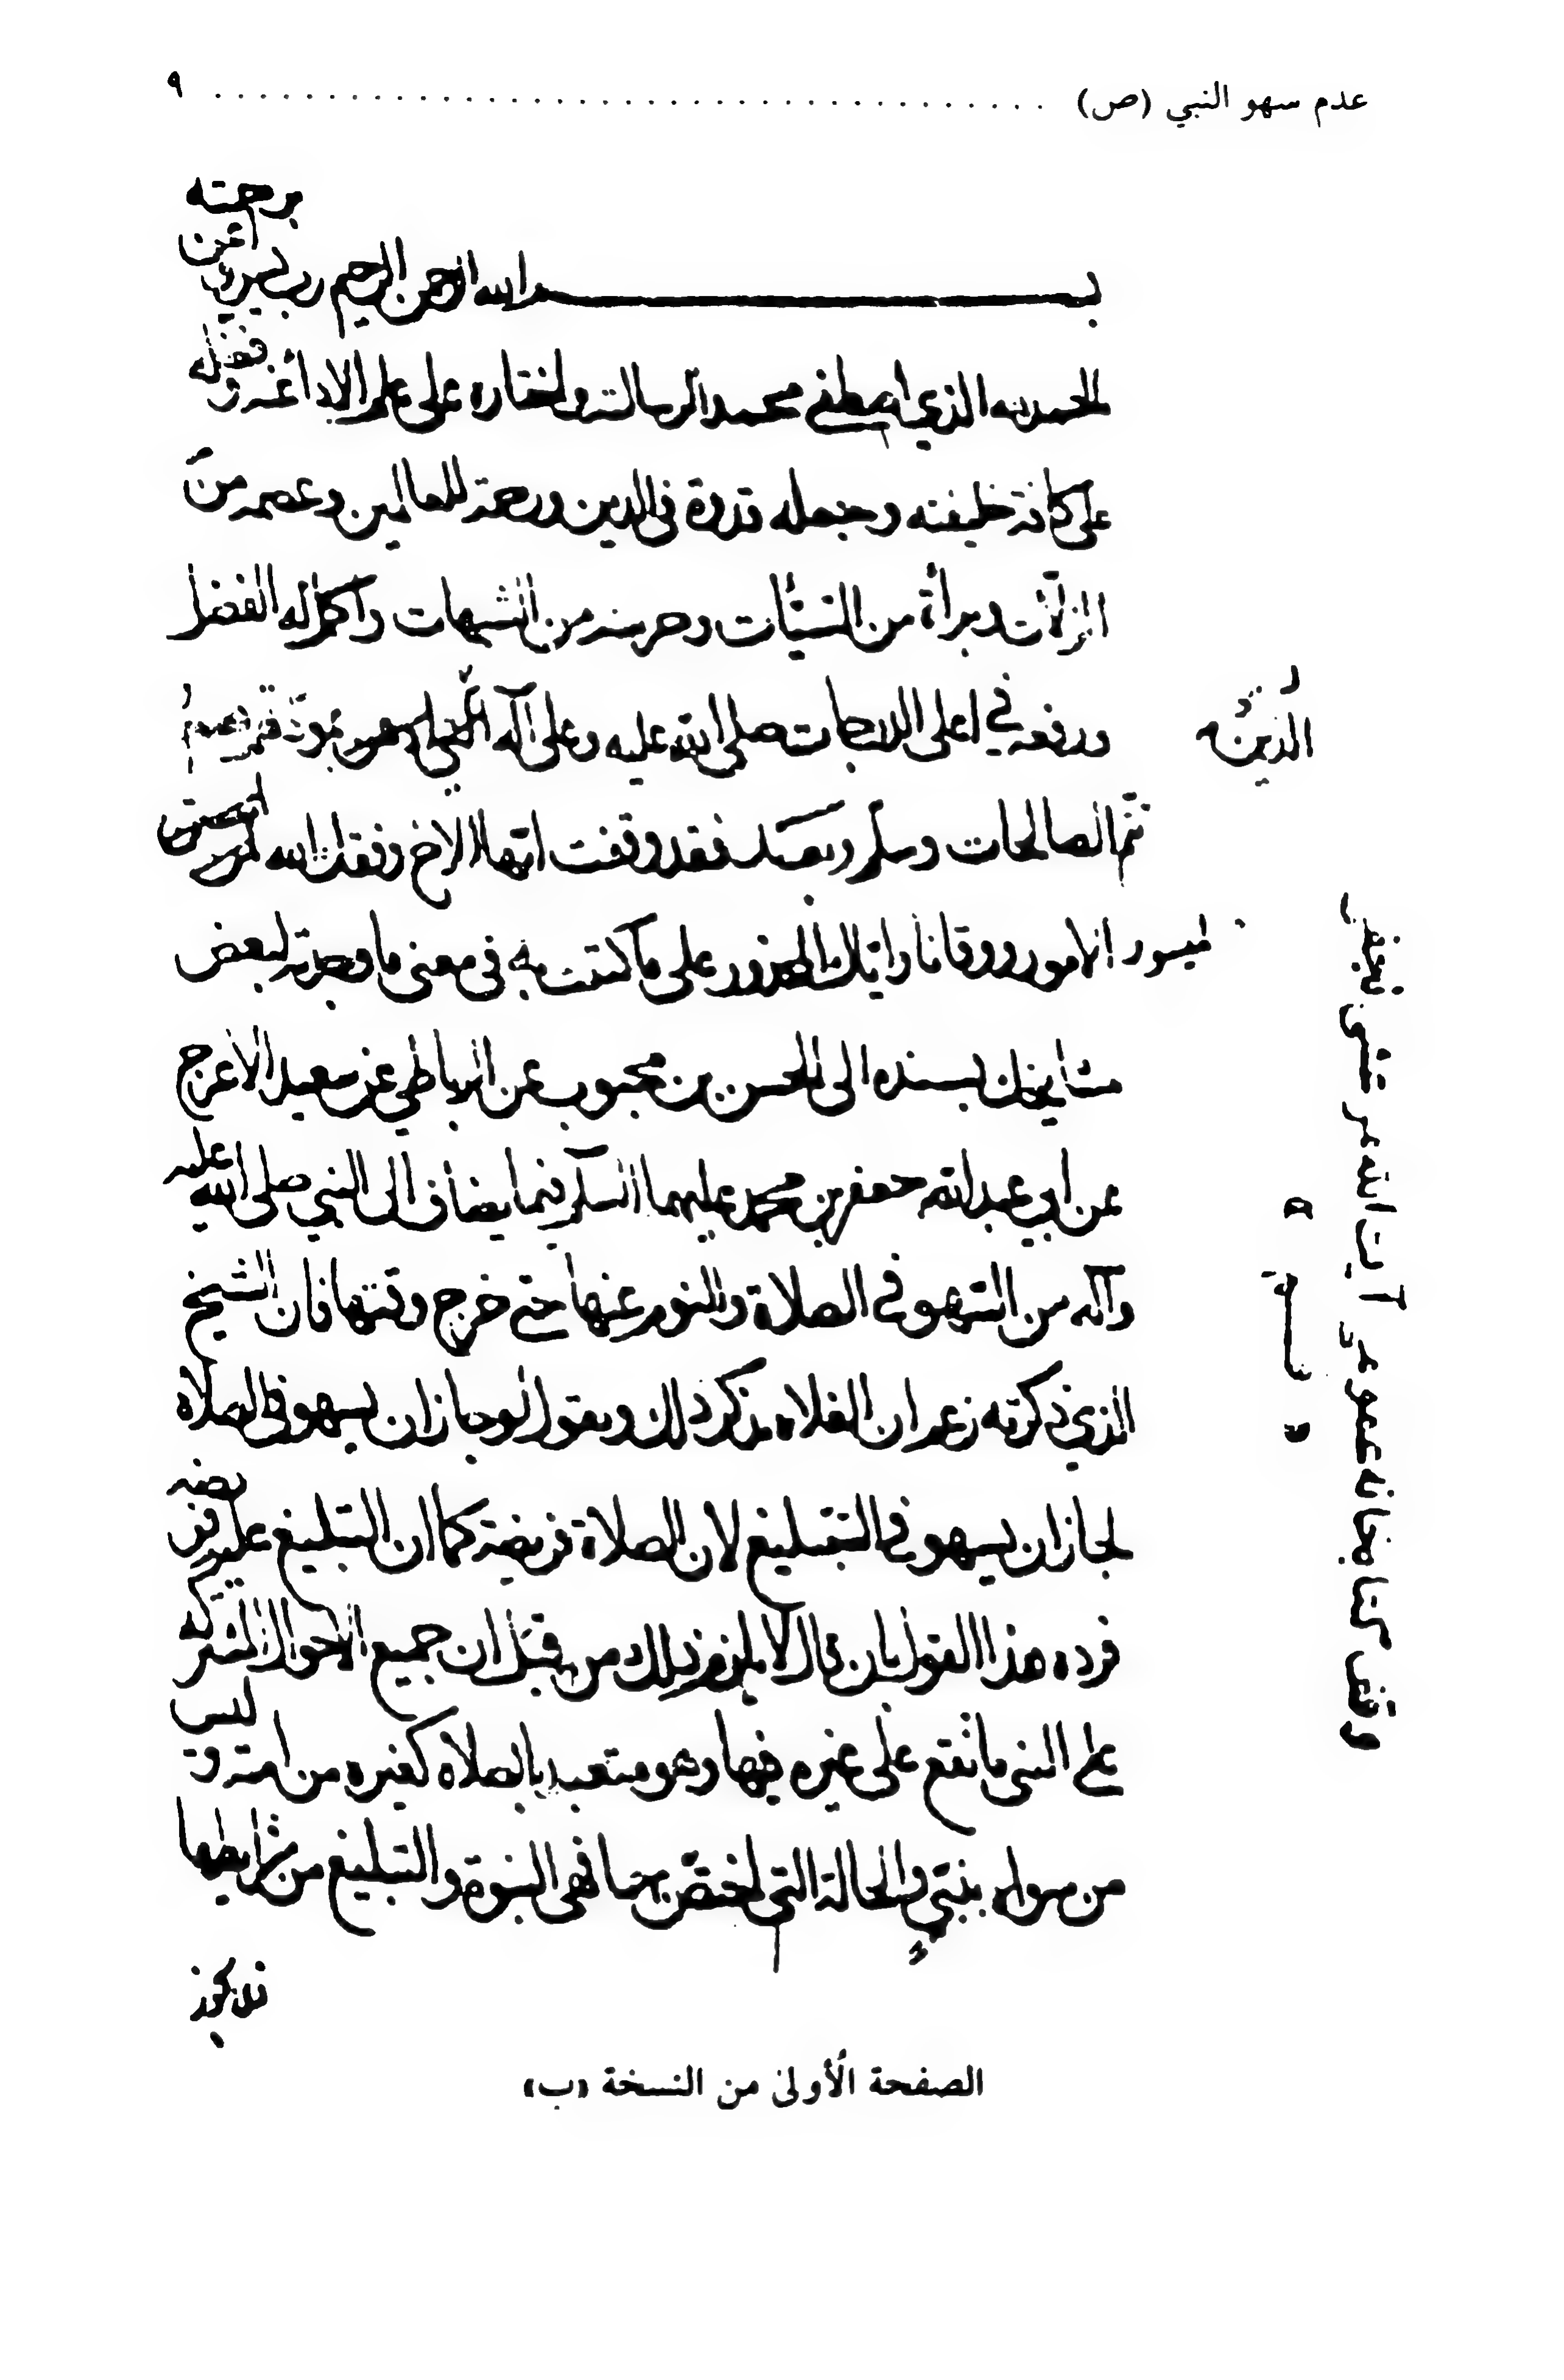 عدم سهو النبي (ص) . . . . . . . . . . . . . . . . . . . . . . . . . . . . . . . . . . . . . ٩
برحمته
بسم الله الرحمن الرحيم رب يسر و
الحمد لله الذي اصطفى محمدا لرسالته واختاره على علم للاداء عنه وفضله
على كافة خليقته وجعله قدوة في الدين ورحمة للعالمين وعصمه من
الزلات وبرأه من السيئات وحرسه من الشبهات واكمل له الفضل
ورفعه في اعلى الدرجات صلى الله عليه وعلى آله
الذين
تتم الصالحات وسلم وبعد فقد وقفت ايها الاخ وفقك الله
لميسور الامور ووقانا واياك المحذور على ما كتبت به في معنى ما وجدته لبعض
مشايخك بسنده الى الحسن بن محبوب عن الرباطي عن سعيد الاعرج
عن ابي عبد الله جعفر بن محمد عليهما السلم فيما يضاف الى النبي صلى الله عليه
وآله من السهو في الصلاة والنوم عنها حتى خرج وقتها فان الشيخ
الذي ذكرته زعم ان الغلاة تنكر ذلك ويقول لو جاز ان يسهو في الصلاة
لجاز ان يسهو في التبليغ لان الصلاة فريضة كما ان التبليغ عليه فريضة
فرد هذا القول بان قال لا يلزم ذلك من قبل ان جميع الاحوال المشتركة
على النبي ما تقع على غيره فيها وهو متعبد بالصلاة كغيره من امته وليس
من سواه بنبي والحالة التي اختص بها هي النبوة والتبليغ من شرايطها
فلا يجوز
الصفحة الأولى من النسخة «ب»